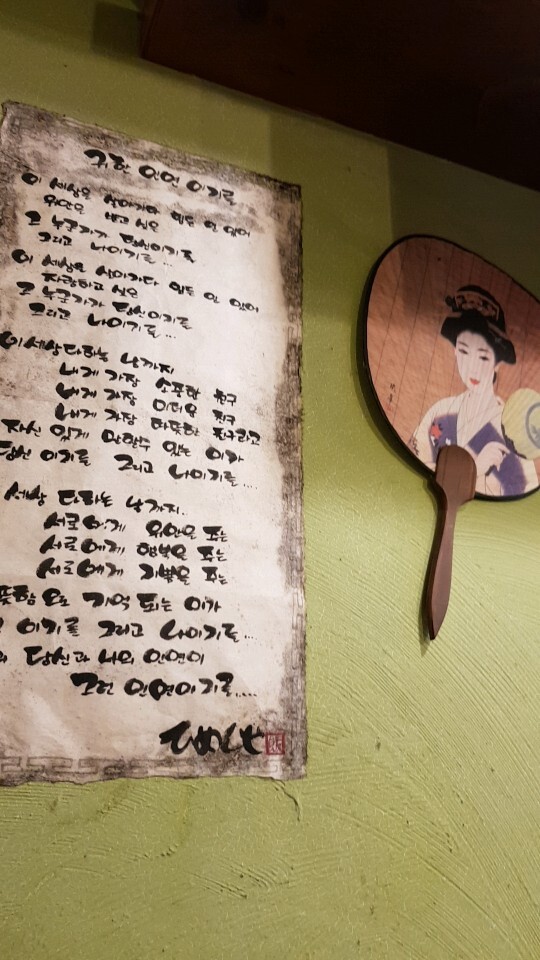 귀한 인연 이기를...
이 세상을 살아가다 힘든 일 있어
위안을 받고 싶은
그 누군가가 당신이기를
그리고 나이기를...
이 세상을 살아가다 힘든 일 있어
자랑하고 싶은
그 누군가가 당신이기를
그리고 나이기를...
이 세상 다하는 날까지
내게 가장 소중한 친구
내게 가장 미더운 친구
내게 가장 따뜻한 친구라고
자신 있게 말할수 있는 이가
당신 이기를 그리고 나이기를....
세상 다하는 날까지.
서로에게 위안을 주는
서로에게 행복을 주는
서로에게 기쁨을 주는
뜻함 으로 기억 되는 이가
이기를 그리고 나이기를...
당신과 나의 인연이
그런 인연이기를....
ひめしせ